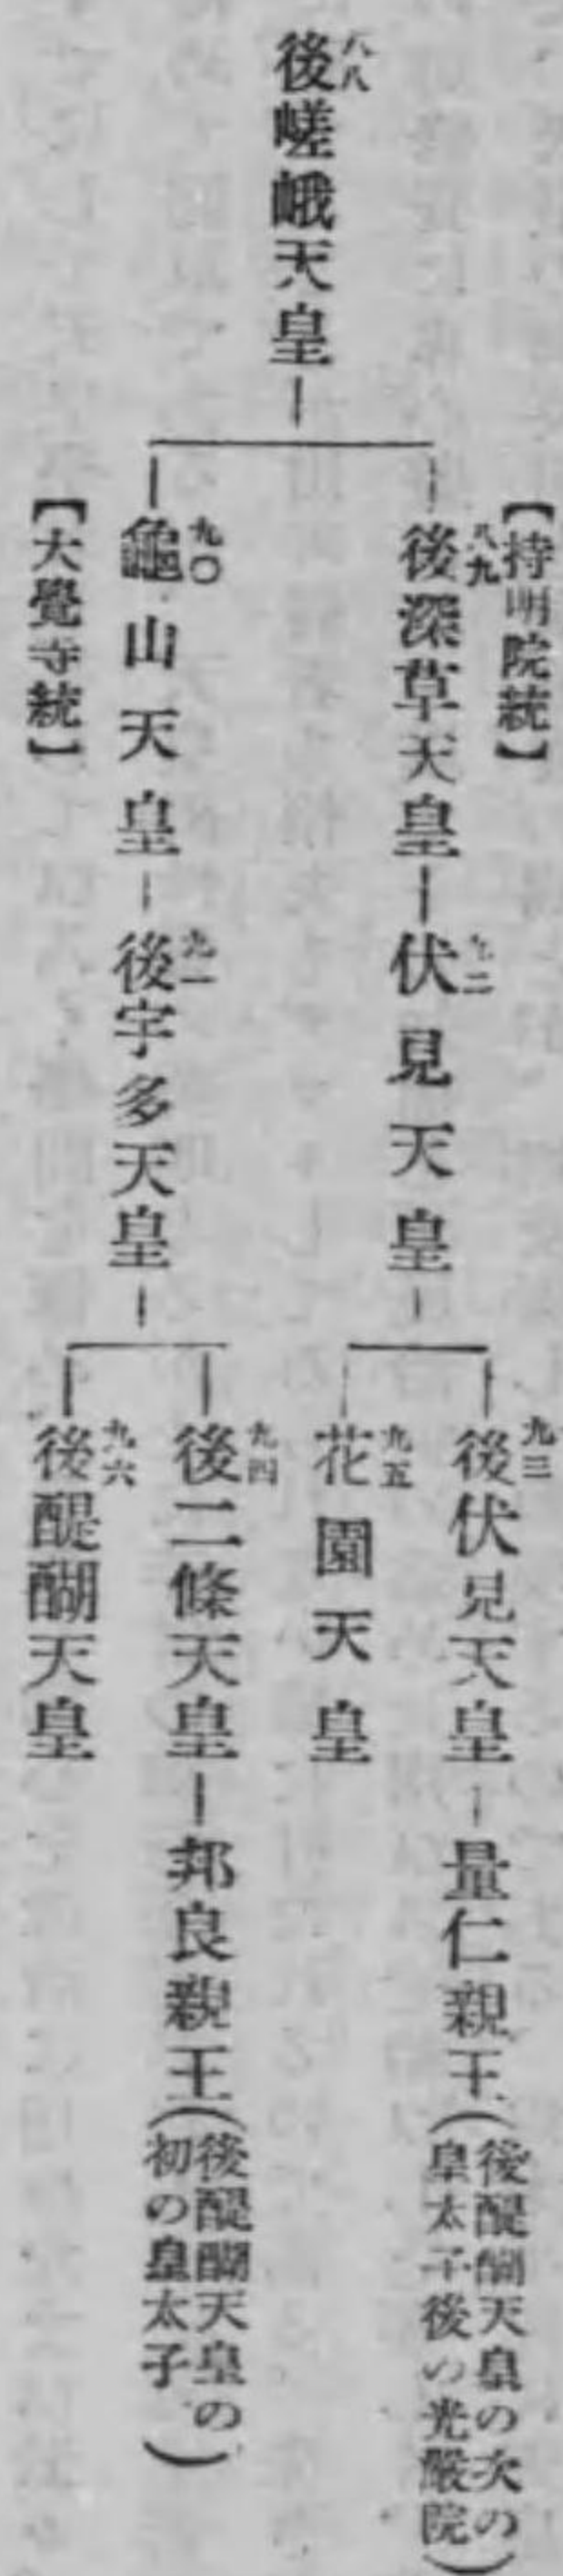 八八
後嵯峨天皇
【持明院統】
八九
後深草天皇
九二
伏見天皇
九三
後伏見天皇
量仁親王
(後醍醐天皇の次の
皇太子後の光嚴院)
九五
花園天皇
九〇
龜山天皇
【大覺寺統】
九一
後宇多天皇
九四
後二條天皇
邦良親王
(後醍醐天皇の
初の皇太子)
九六
後醍醐天皇